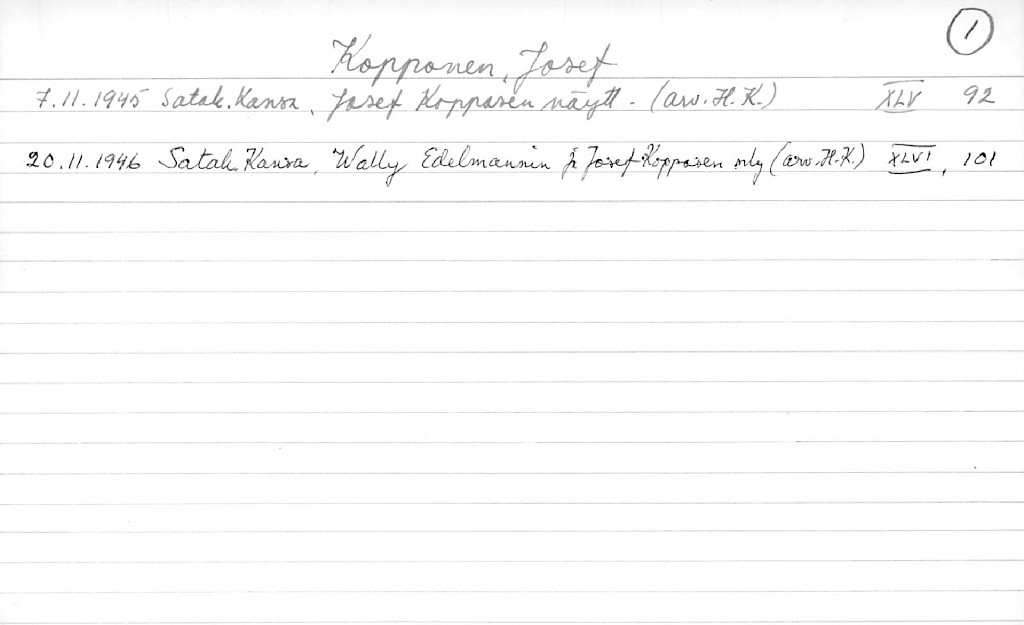 1
Kopponen, Josef
7.11.1945 Satak. Kansa, Josef Kopposen näytt. (arv. H.K.) XLV 92
20.11.1946 Satak. Kansa, Wally Edelmannin ja Josef Kopposen nly (arv. H.K.) XLVI, 101